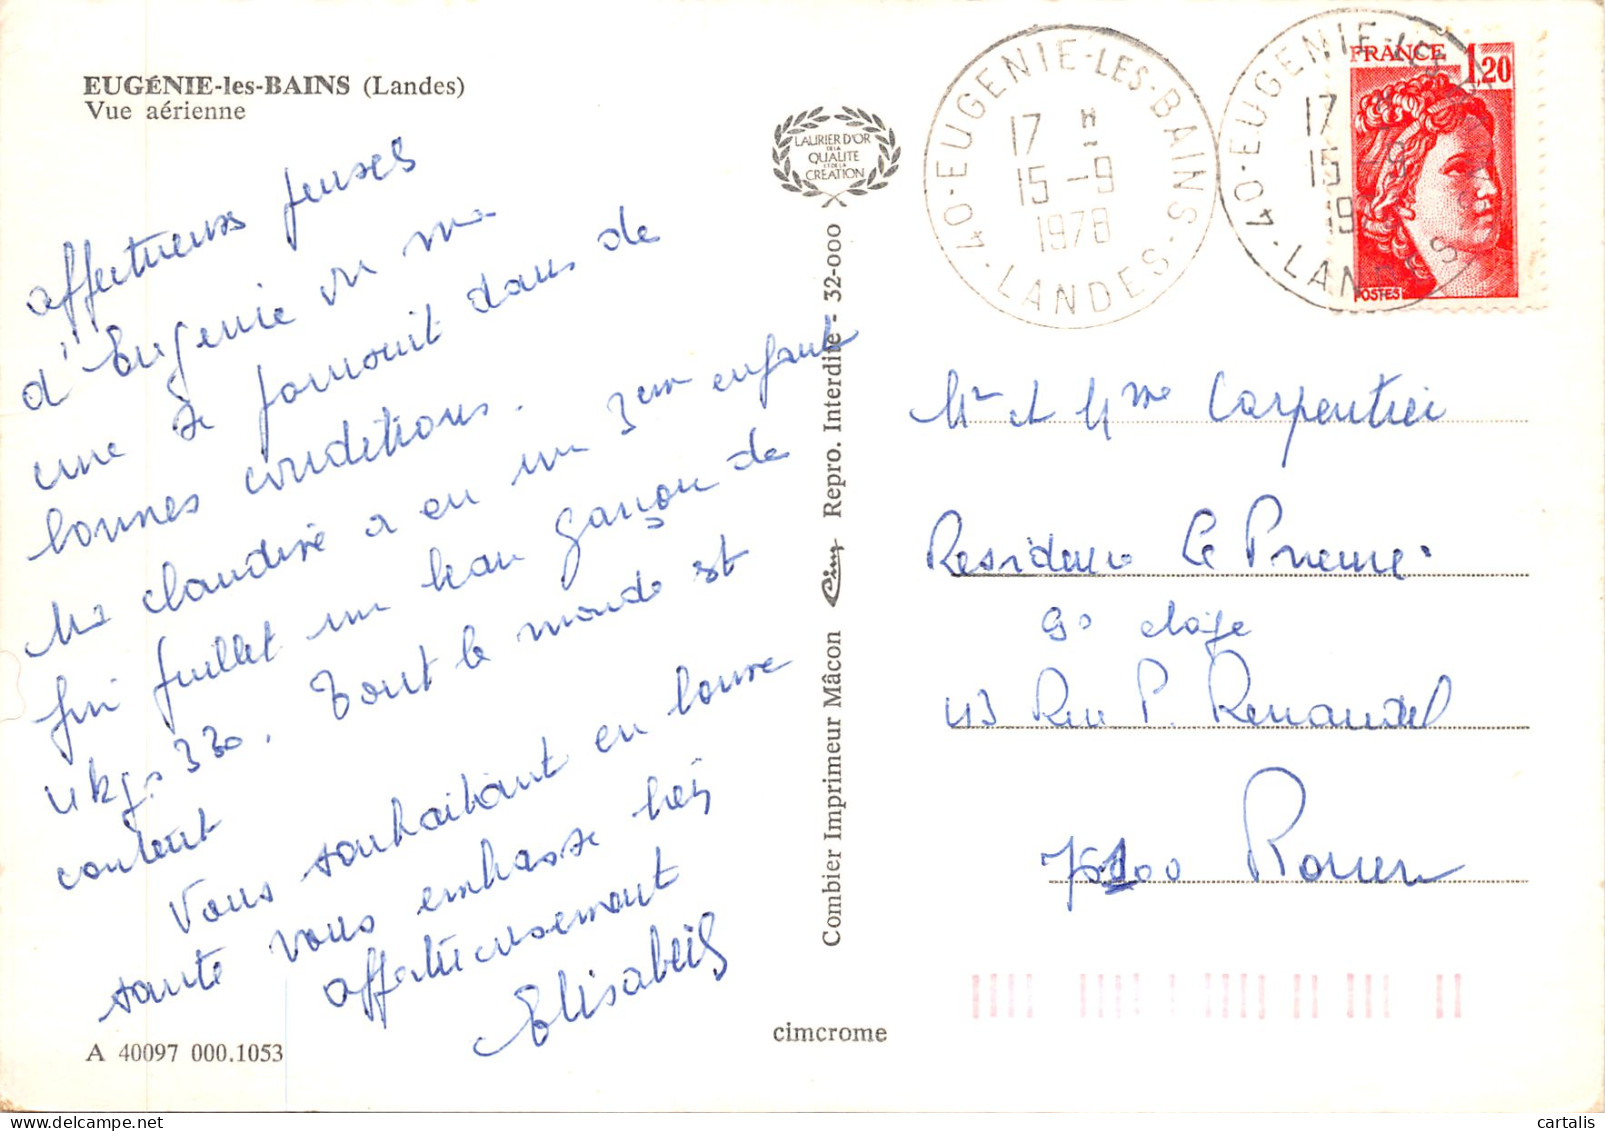 EUGÉNIE-les-BAINS (Landes)
Vue aérienne
affectueuses pensées
d'Eugénie où ma
cure se poursuit dans de
bonnes conditions.
Me Claudine a eu un 3em enfant
fin juillet un beau garçon de
4 kgs 330. Tout le monde est
content
Vous souhaitant en bonne
santé vous embrasse très
affectueusement
Elisabeth
A 40097 000.1053
LAURIER D'OR
DE LA
QUALITE
ET DE LA
CREATION
Combier Imprimeur Mâcon Cim Repro. Interdite - 32-000
cimcrome
40 - EUGENIE-LES-BAINS - LANDES
17 H
15 -9
1978
40 - EUGENIE-LES
LANDES
17
15 -9
19
FRANCE 1,20
POSTES
Mr et Mme Carpentier
Residence Le
9e
43 Rue P. Renaudel
76100 Rouen
cartalis